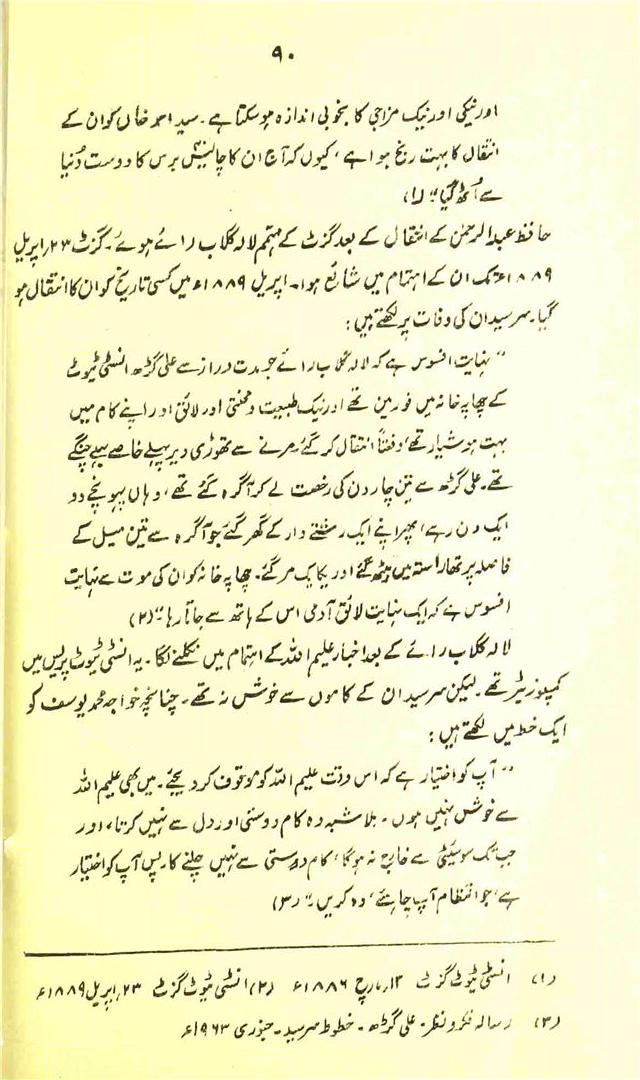 ۹۰
اور نیکی اور نیک مزاجی کا بخوبی اندازہ ہو سکتا ہے۔ سید احمد خاں کو ان کے
انتقال کا بہت رنج ہوا ہے، کیوں کہ آج ان کا چالیس برس کا دوست دُنیا
سے اُٹھ گیا" (۱)
حافظ عبدالرحمٰن کے انتقال کے بعد گزٹ کے مہتمم لالہ گلاب رائے ہوئے۔ گزٹ ۲۳؍اپریل
۱۸۸۹ء تک ان کے اہتمام میں شائع ہوا۔ اپریل ۱۸۸۹ء میں کسی تاریخ کو ان کا انتقال ہو
گیا۔ سرسید ان کی وفات پر لکھتے ہیں:
"نہایت افسوس ہے کہ لالہ گلاب رائے جو مدت دراز سے علی گڑھ انسٹی ٹیوٹ
کے چھاپہ خانہ میں فورمین تھے اور نیک طبیعت و محنتی اور لائق اور اپنے کام میں
بہت ہوشیار تھے، دفعتاً انتقال کر گئے، مرنے سے تھوڑی دیر پہلے خاصے بھلے چنگے
تھے۔ علی گڑھ سے تین چار دن کی رخصت لے کر آگرہ گئے تھے، وہاں پہونچے دو
ایک دن رہے، پھر اپنے ایک رشتے دار کے گھر گئے جو آگرہ سے تین میل کے
فاصلہ پر تھا راستہ میں بیٹھ گئے اور یکایک مر گئے۔ چھاپہ خانہ کو ان کی موت سے نہایت
افسوس ہے کہ ایک نہایت لائق آدمی اس کے ہاتھ سے جاتا رہا۔" (۲)
لالہ گلاب رائے کے بعد اخبار علیم اللہ کے اہتمام میں نکلنے لگا۔ یہ انسٹی ٹیوٹ پریس میں
کمپوزیٹر تھے۔ لیکن سرسید ان کے کاموں سے خوش نہ تھے۔ چنانچہ خواجہ محمد یوسف کو
ایک خط میں لکھتے ہیں:
"آپ کو اختیار ہے کہ اس وقت علیم اللہ کو موقوف کر دیجئے۔ میں بھی علیم اللہ
سے خوش نہیں ہوں۔ بلا شبہ وہ کام دوستی اور دل سے نہیں کرتا، اور
جب تک سوسیٹی سے خارج نہ ہوگا، کام درستی سے نہیں چلنے کا۔ پس آپ کو اختیار
ہے، جو انتظام آپ چاہئے، وہ کریں۔" (۳)
(۱) انسٹی ٹیوٹ گزٹ ۱۳؍مارچ ۱۸۸۶ء (۲) انسٹی ٹیوٹ گزٹ ۲۳؍اپریل ۱۸۸۹ء
(۳) رسالہ فکر و نظر۔ علی گڑھ۔ خطوط سرسید۔ جنوری ۱۹۶۳ء